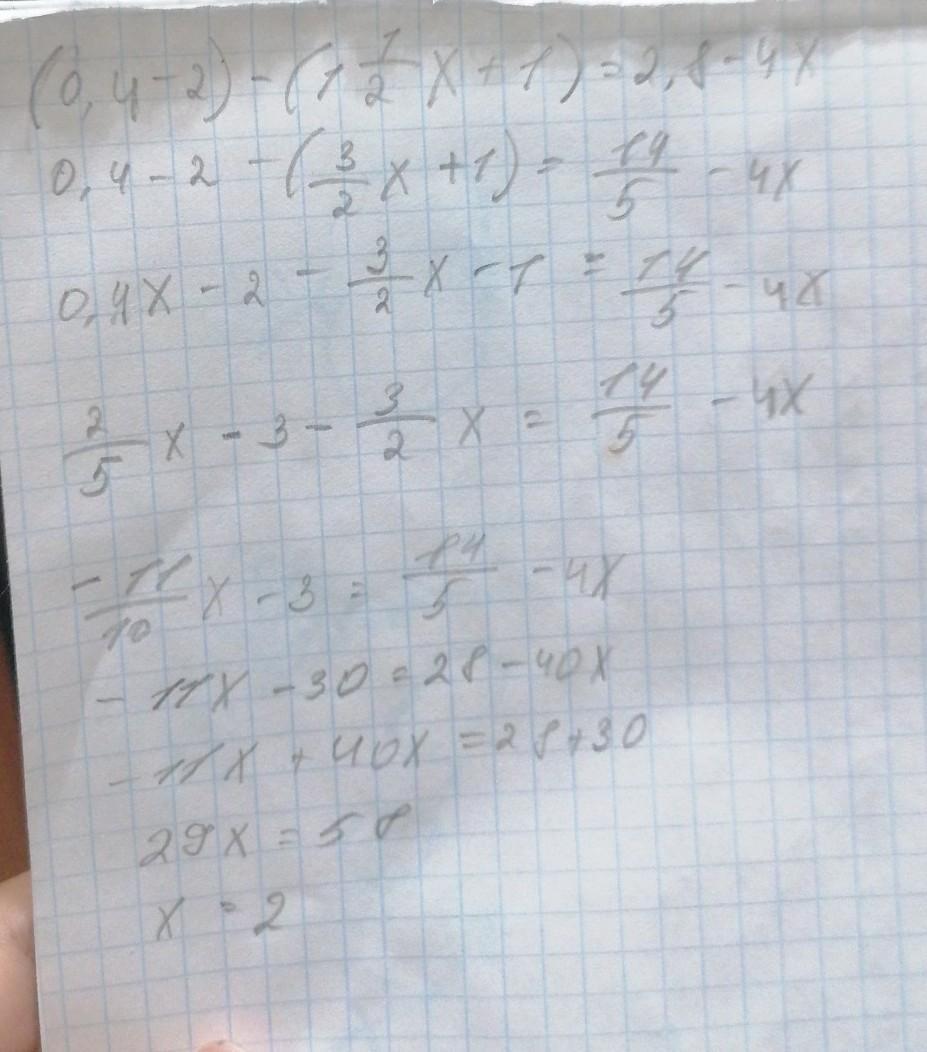 (0,4-2)-(1 1/2 x+1)=2,8-4x
0,4-2-(3/2 x+1)=14/5-4x
0,4x-2-3/2 x-1=14/5-4x
2/5 x-3-3/2 x=14/5-4x
-11/10 x-3=14/5-4x
-11x-30=28-40x
-11x+40x=28+30
29x=58
x=2